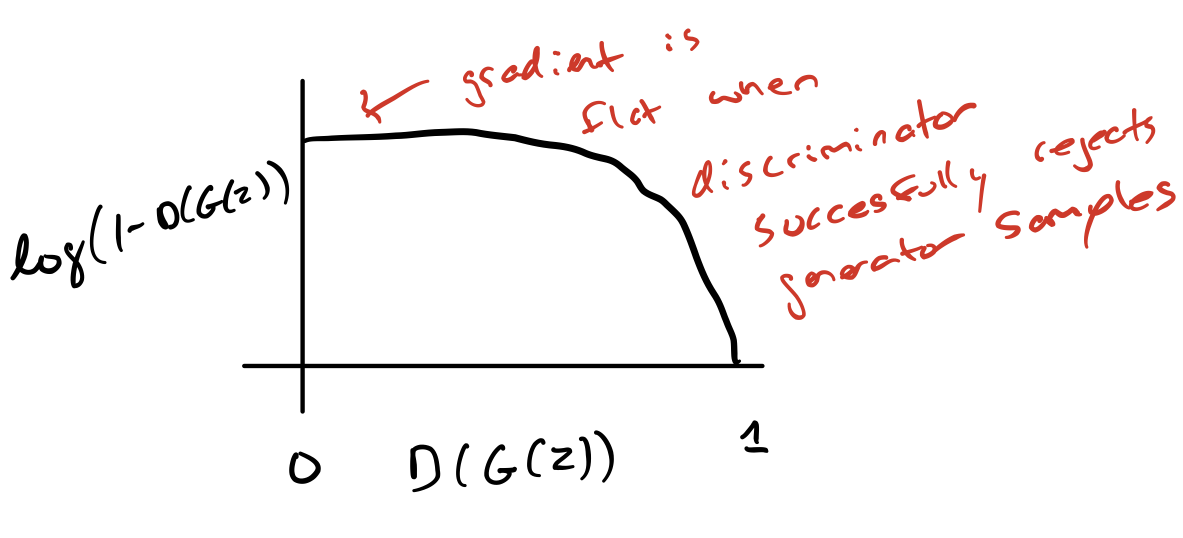 gradient is
flat when
discriminator
successfully rejects
generator samples
log(1-D(G(z))
0 D(G(z)) 1